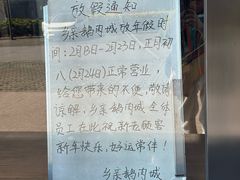 放假通知
乡亲鹅肉城放年假时
间:2月8日-2月23日,正月初
八(2月24日)正常营业,
给您带来的不便,敬请
谅解,乡亲鹅肉城全体
员工在此祝新老顾客
新年快乐,好运常伴!
乡亲鹅肉城